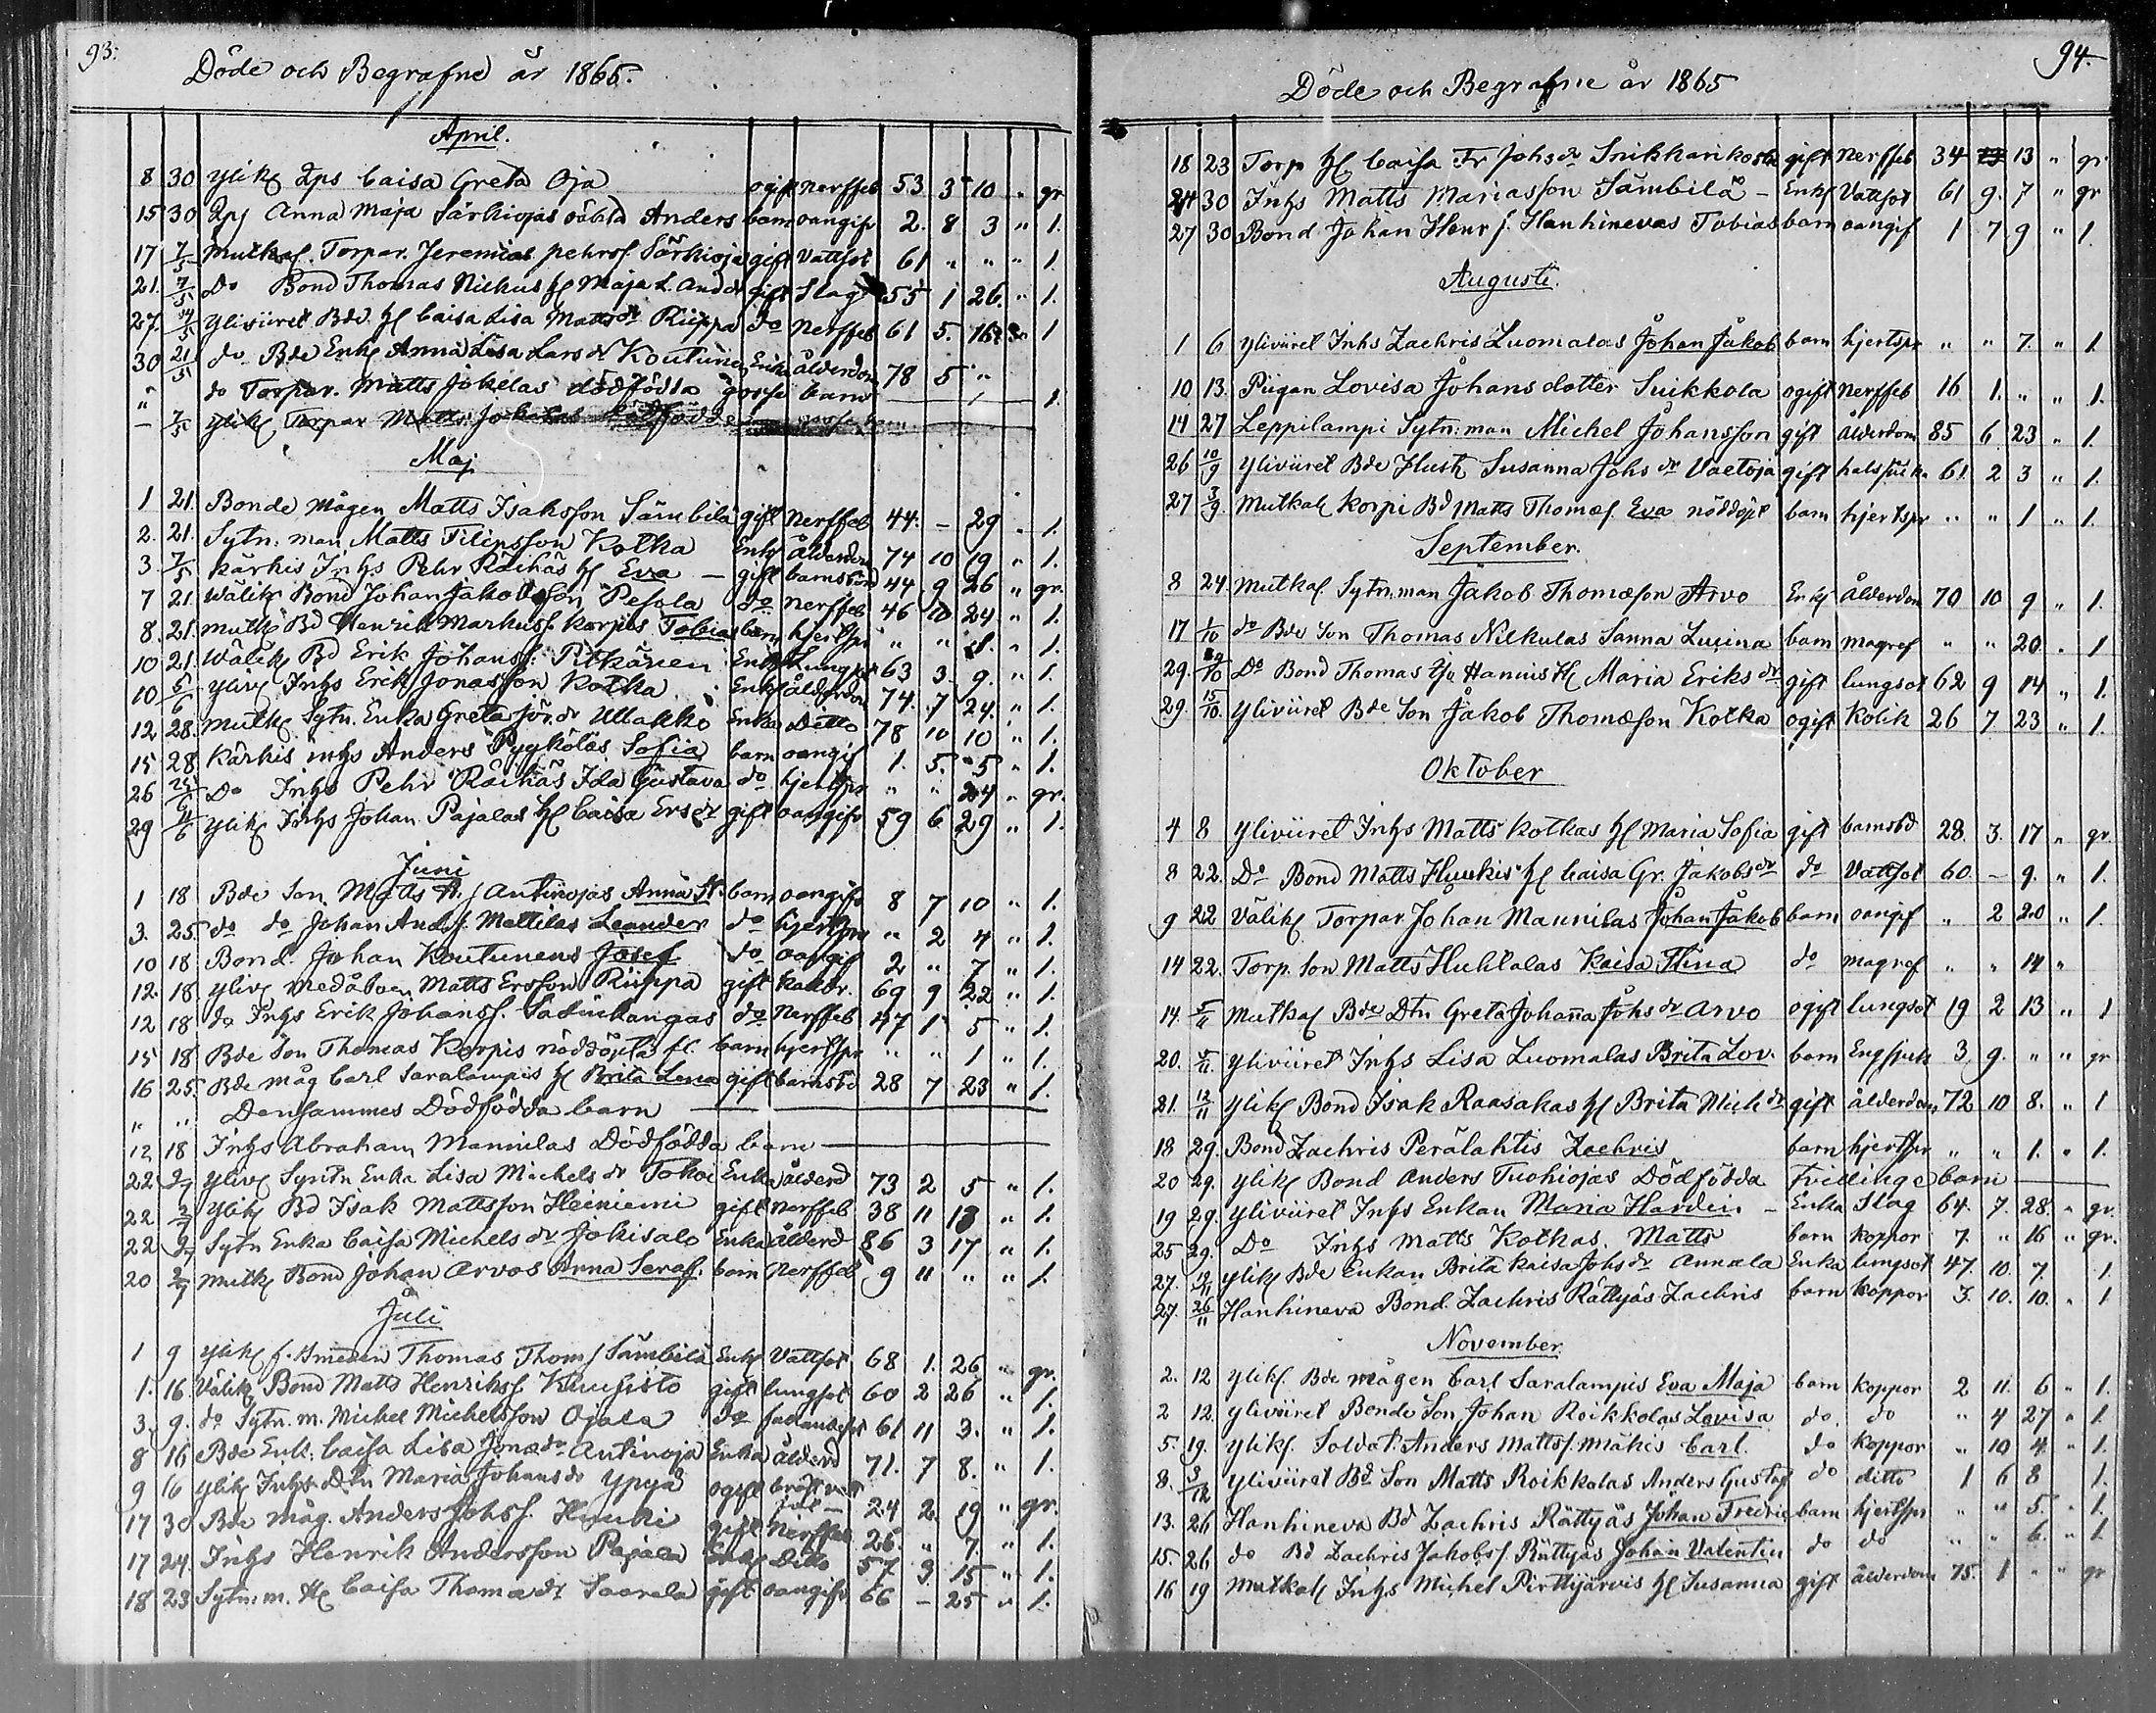 93.
Döde och Begrafne år 1865.
April.
8 30 Ylik Qps Caisa Greta Oja ogift Nerffeb 53 3 10 " gr
15 30 Qpj Anna Maja Särkiojas Anders barn oangifv 2. 8 3 " 1.
17 7/5 Mutkal. Torpar. Jeremias Pehrss. Särkioja gift Vattsot 61 " " " 1.
21. 7/5 Do Bond Thomas Niekus H Maja L. And dr gift Slag 55 1 26. " 1.
27. 14/5 Yliviiret Bde. H Caisa Lisa Matts dr Riippa do Nerffeb 61 5. 16 1
30 21/5 do Bde Enk Anna Lisa Lars dr Koutune Enka ålderdom 78 5 "
" do Torpar. Matts Jokelas dödfödda gosse barn 1.
– 7/5 Ylik Torpar Matts Jokelas dödfödde gosse barn
Maj
1 21. Bonde mågen Matts Isaksson Sämbilä gift Nerffeb 44. – 29 " 1.
2. 21. Sytn: man Matts Filipsson Kotka Enkl Ålderdom 74 10 19 " 1.
3. 7/5 Kärkis Inhs Pehr Räihäs H Eva – gift barnsbörd 44 9 26 " gr.
7 21. Wälik Bond Johan Jakobsson Pesola do Nerffeb 46 10 24 " 1.
8. 21. Mutk Bd Henrik Markuss. Korpis Tobias barn hjertspr " " 1. " 1.
10 21. Wälik Bd Erik Johanss: Pitkänen Enkl Lungsot 63 3. 9. " 1.
10 5/6 Yliv Inhs Erik Jonasson Kotka Enkl ålderdom 74. 7 24. " 1.
12 28. Mutk Sytn. Enka Greta Jör. dr Ullakko Enka Detto 78 10 10 " 1.
15 28 Kärkis inhs Anders Pyykölas Sofia barn oangif 1. 5. 5 " 1.
26 Do Inhs Pehr Räihäs Ida Gustava do hjertspr " " 24 " gr.
29 11/6 Ylik Inhs Johan Pajalas H Caisa Ers dr gift oangifv 59 6 29 " 1.
Juni
1 18 Bde Son Matts A. Antinojas Anna St. barn oangifv 8 7 10 " 1.
3. 25. do do Johan Ands. Mattilas Leander do hjertspr " 2 4 " 1.
10 18 Bond. Johan Koutunens Josef do oangif 2 " 7 " 1.
12. 18 Yliv medåboen Matts Ersson Riippa gift 69 9 22 " 1.
12 18 do Inhs Erik Johanss. Sadinkangas do Nerffeb 47 1 5 " 1.
15 18 Bde Son Thomas Korpis nöddöpta fl. barn hjertspr " " 1 " 1.
16 25. Bde måg Carl Saralampis H Brita Lena gift barnsbd 28 7 23 " 1.
" " Densammes Dödfödda barn
12 18 Inhs Abraham Mannilas Dödfödda barn
22 2/7 Yliv Syntn Enka Lisa Michels dr Tokoi Enka ålderd 73 2 5 " 1.
22 2/7 Ylik Bd Isak Mattsson Heiniemi gift Nerffeb 38 11 13 " 1.
22 2/7 Sytn Enka Caisa Michels dr Jokisalo Enka ålderd 86 3 17 " 1.
20 2/7 Mutk Bond Johan Arvos Anna Seraf. barn Nerffeb 9 11 " " 1.
Juli
1 9 Ylik f. Smeden Thomas Thoms Sämbilä Enkl Vattsot 68 1. 26 " gr.
1. 16 Välik Bond Matts Henrikss. Knuuhisto gift lungsot 60 2 26 " 1.
3. 9. do Sytn. m. Michel Michelsson Ojala do 61 11 3. " 1.
8 16 Bde Enk: Caisa Lisa Jonæ dr Antinoja Enka ålderd 71. 7 8. " 1.
9 16 Ylik Inhs Dtn Maria Johans dr Ypyä ogift bröst 24 2 19 " gr.
17 30 Bde Måg. Anders Johss. Huuki gift Nerffeb 26. " 7 " 1.
17 24. Inhs Henrik Andersson Pajala Enkl Ditto 57 9 15 " 1.
18 23 Sytn: m. H Caisa Thomæ dr Saarela gift oangifv 66 – 25 " 1.
94.
Döde och Begrafne år 1865
18 23 Torp H Caisa Fr Johs dr Snikkarikoski gift Nerffeb 34 13 " gr
24 30 Inhs Matts Mariasson Sämbilä – Enkl Vattsot 61 9. 7 " gr
27 30 Bond Johan Henrs. Hanhinevas Tobias barn oangif 1 7 9 " 1.
Augusti.
1 6 Yliviiret Inhs Zachris Luomalas Johan Jakob barn hjertspr " " 7. " 1.
10 13. Pigan Lovisa Johans dotter Suikkola ogift Nerffeb 16 1. " " 1.
14 27 Leppilampi Sytn: man Michel Johansson gift Ålderdom 85 6 23 " 1.
26 10/9 Yliviiret Bde Hustr Susanna Johs dr Vaetoja gift halssjuk. 61 2 3 " 1.
27 3/9. Mutkal Korpi Bd Matts Thomæs. Eva nöddöpt barn hjertspr " " 1 " 1.
September.
8 24. Mutkal. Sytn: man Jakob Thomæson Arvo Enkl Ålderdom 70 10 9 " 1.
17 1/10 do Bde Son Thomas Nilkulas Sanna Lusina barn magref " " 20 " 1
29. Do Bond Thomas Hannus H Maria Eriks dr gift lungsot 62 9 14 " 1.
29. 15/10. Yliviiret Bde Son Jakob Thomæson Kotka ogift Kolik 26 7 23 " 1.
Oktober
4 8 Yliviiret Inhs Matts Kotkas H Maria Sofia gift barnsbd 28. 3. 17 " gr.
8 22. Do Bond Matts Huukis H Caisa Gr. Jakobs dr do Vattsot 60 – 9. " 1.
9 22 Välik Torpar Johan Mannilas Johan Jakob barn oangif " 2 20 " 1.
14 22. Torp. Son Matts Huhtalas Kaisa Stina do magref " " 14 "
14. 5/11 Mutkal Bde Dtn Greta Johanna Johs dr Arvo ogift lungsot 19 2 13 " 1
20. 5/11. Yliviiret Inhs Lisa Luomalas Brita Lov. barn Engsjuk 3 9. " " gr
21. 12/11 Ylik Bond Isak Raasakas H Brita Mich dr gift ålderdom 72 10 8. " 1
18 29. Bond Zachris Perälahtis Zachris barn hjertspr " " 1. " 1.
20 29. Ylik Bond Anders Tuohiojas Dödfödda Tvillinge barn
19 29. Yliviiret Inhs Enkan Maria Hardin – Enka Slag 64. 7. 28. " gr.
25 29. Do Inhs Matts Kotkas Matts barn koppor 7. " 16 " gr.
27. 12/11 Ylik Bde Enkan Brita Kaisa Johs dr Annala Enka lungsot 47. 10. 7. 1
27. 26/11 Hanhineva Bond. Zachris Rättyäs Zachris barn koppor 3. 10. 10. " 1
November.
2. 12 Ylik. Bde mågen Carl Saralampis Eva Maja barn koppor 2 11. 6 " 1.
2 12. Yliviiret Bonde Son Johan Roikkolas Lovisa do. do " 4 27 " 1.
5. 19. Ylik. Soldat. Anders Mattss. Mäkis Carl do koppor " 10 4. " 1.
8. 3/12 Yliviiret Bd Son Matts Roikkolas Anders Gustaf do ditto 1 6 8 1.
13. 26 Hanhineva Bd Zachris Rättyäs Johan Fredric barn hjertspr " " 5. " 1.
15. 26 do Bd Zachris Jakobss. Rättyäs Johan Valentin do do " " 6. " 1.
16 19 Mutkal Inhs Michel Pirttijärvis H Susanna gift ålderdom 75. 1 " " gr